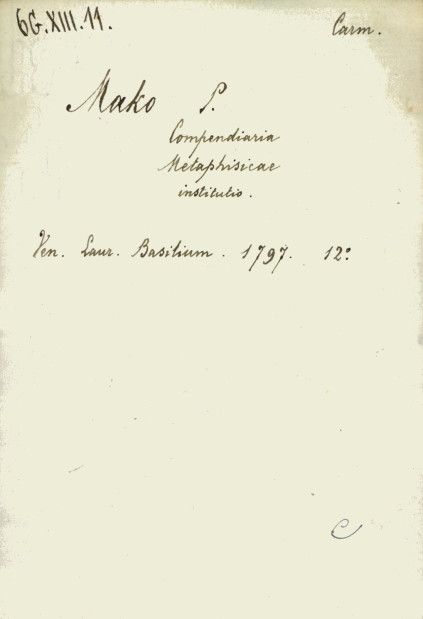 6G.XIII.11.
Carm.
Mako P.
Compendiaria
Metaphisicae
institutio.
Ven. Laur. Basilium. 1797. 12°
C